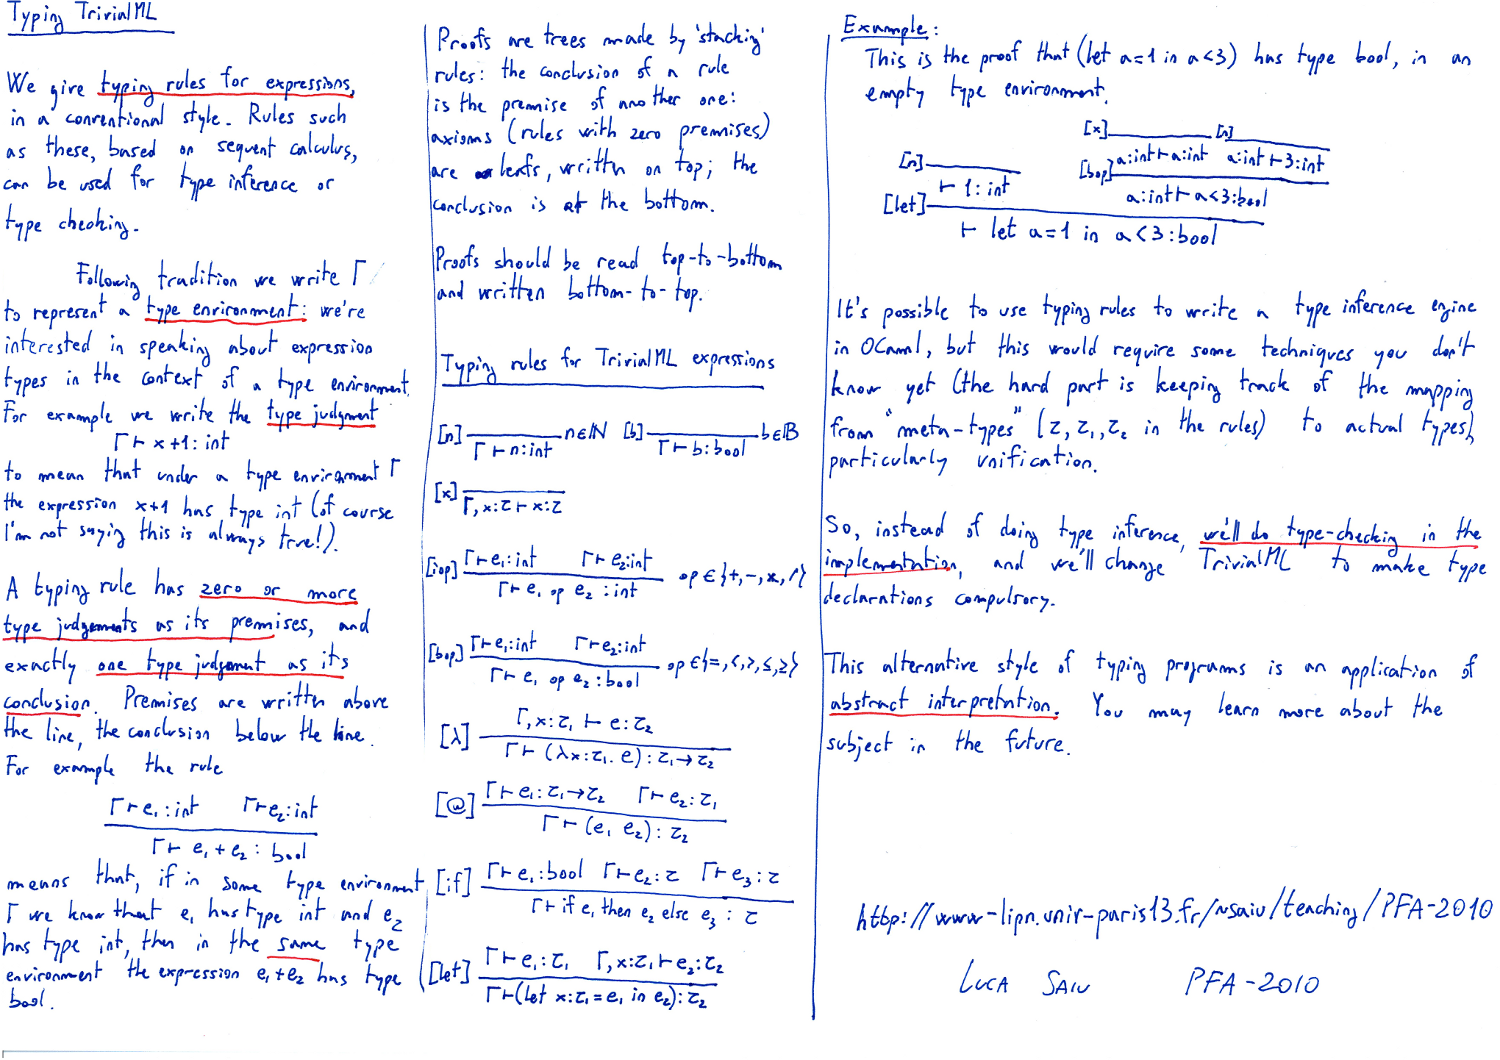 Typing TrivialML
We give typing rules for expressions,
in a conventional style. Rules such
as these, based on sequent calculus,
can be used for type inference or
type checking.
Following tradition we write Γ
to represent a type environment: we're
interested in speaking about expression
types in the context of a type environment.
For example we write the type judgment
Γ ⊢ x+1: int
to mean that under a type environment Γ
the expression x+1 has type int (of course
I'm not saying this is always true!).
A typing rule has zero or more
type judgements as its premises, and
exactly one type judgment as its
conclusion. Premises are written above
the line, the conclusion below the line.
For example the rule
Γ ⊢ e₁ : int Γ ⊢ e₂ : int
Γ ⊢ e₁ + e₂ : bool
means that, if in some type environment
Γ we know that e₁ has type int and e₂
has type int, then in the same type
environment the expression e₁+e₂ has type
bool.
Proofs are trees made by 'stacking'
rules: the conclusion of a rule
is the premise of another one:
axioms (rules with zero premises)
are leafs, written on top; the
conclusion is at the bottom.
Proofs should be read top-to-bottom
and written bottom-to-top.
Typing rules for TrivialML expressions
[n] n∈ℕ [b] b∈𝔹
Γ ⊢ n:int Γ ⊢ b:bool
[x]
Γ, x:τ ⊢ x:τ
[iop] Γ ⊢ e₁:int Γ ⊢ e₂:int op ∈ {+, -, ×, /}
Γ ⊢ e₁ op e₂ : int
[bop] Γ ⊢ e₁:int Γ ⊢ e₂:int op ∈ {=, <, >, ≤, ≥}
Γ ⊢ e₁ op e₂ : bool
[λ] Γ, x:τ₁ ⊢ e:τ₂
Γ ⊢ (λx:τ₁. e) : τ₁→τ₂
[@] Γ ⊢ e₁ : τ₁→τ₂ Γ ⊢ e₂ : τ₁
Γ ⊢ (e₁ e₂) : τ₂
[if] Γ ⊢ e₁:bool Γ ⊢ e₂:τ Γ ⊢ e₃:τ
Γ ⊢ if e₁ then e₂ else e₃ : τ
[let] Γ ⊢ e₁ : τ₁ Γ, x:τ₁ ⊢ e₂:τ₂
Γ ⊢ (let x:τ₁ = e₁ in e₂) : τ₂
Example:
This is the proof that (let a=1 in a<3) has type bool, in an
empty type environment.
[x] [n]
[n] [bop] a:int ⊢ a:int a:int ⊢ 3:int
⊢ 1:int a:int ⊢ a<3:bool
[let]
⊢ let a=1 in a<3:bool
It's possible to use typing rules to write a type inference engine
in OCaml, but this would require some techniques you don't
know yet (the hard part is keeping track of the mapping
from "meta-types" (τ, τ₁, τ₂ in the rules) to actual types),
particularly unification.
So, instead of doing type inference, we'll do type-checking in the
implementation, and we'll change TrivialML to make type
declarations compulsory.
This alternative style of typing programs is an application of
abstract interpretation. You may learn more about the
subject in the future.
http://www-lipn.univ-paris13.fr/~saiu/teaching/PFA-2010
LUCA SAIU PFA-2010